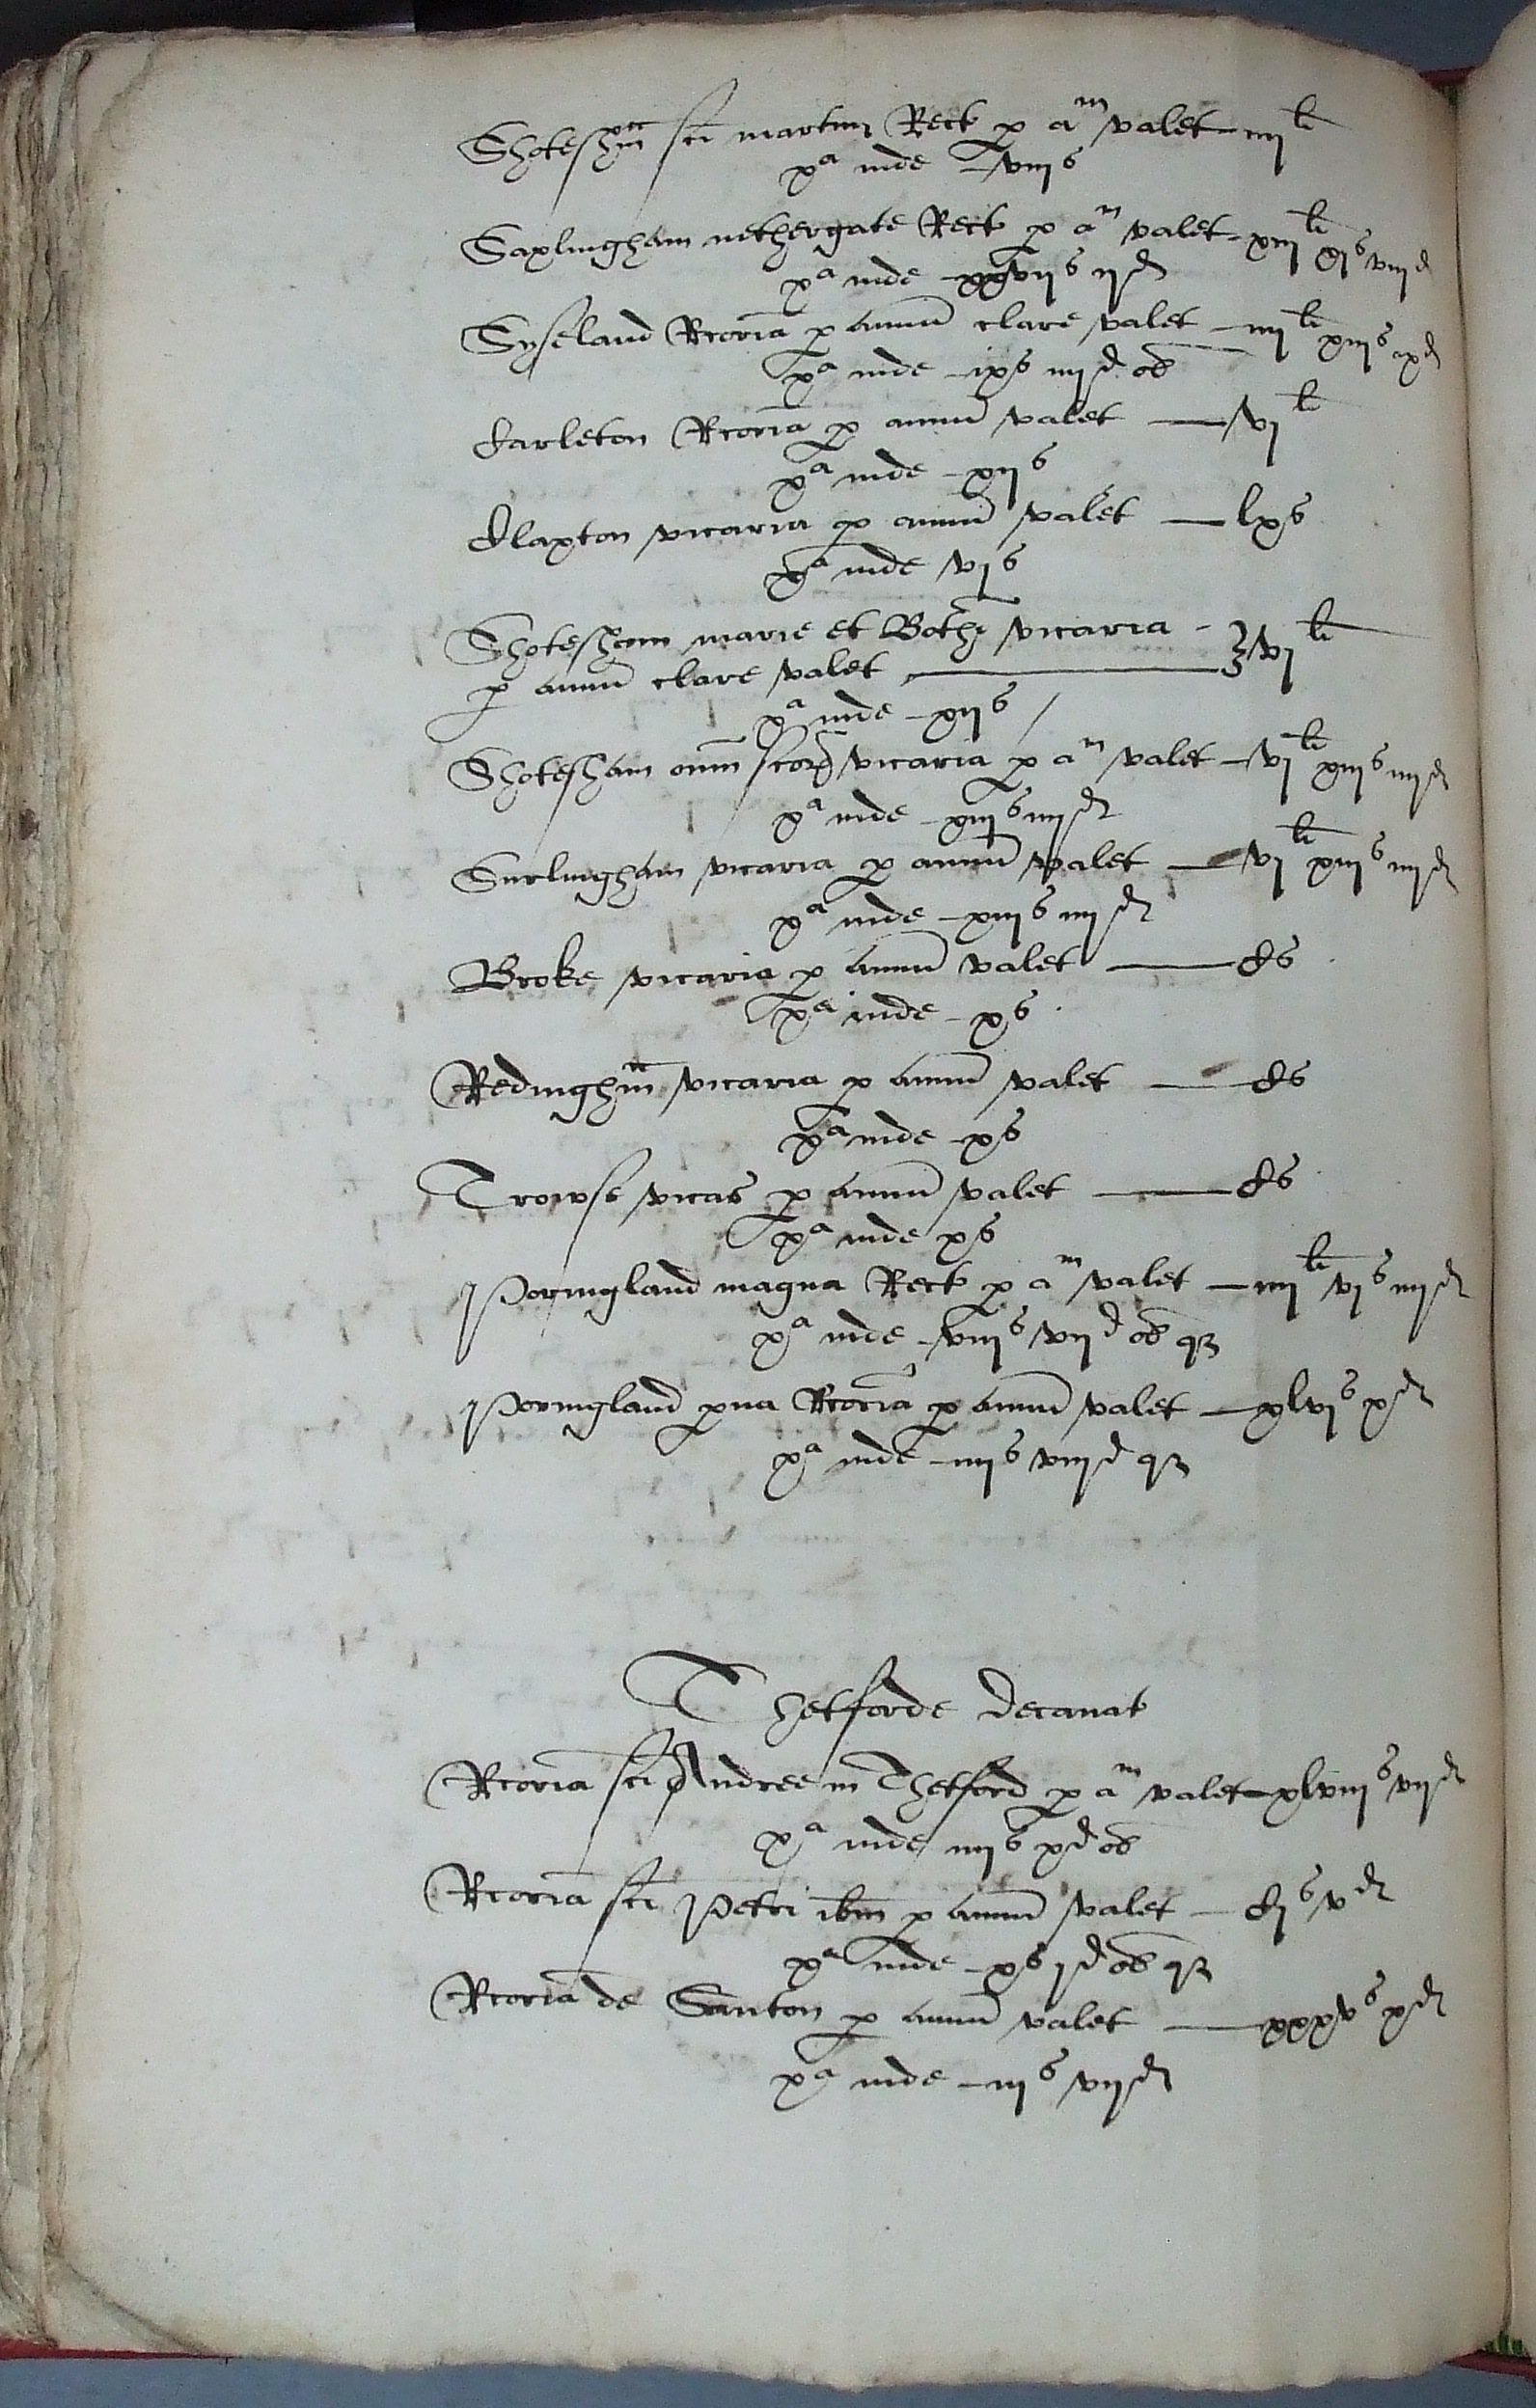 Shotesħm sci martini Rect p a^m valet – iiij^li
x^a inde – viij^s
Saxlingham nethergate Rect p a^m valet – xiij^li xj^s viij^d
x^a inde – xxvij^s ij^d
Syseland Rcoria p annu clare valet – iiij^li xiij^s ix^d
x^a inde – ix^s iiij^d ob
Carleton Rcoria p annu valet — vj^li
x^a inde – xij^s
Claxton vicaria p annu valet — lx^s
x^a inde vj^s
Shotesham marie et Bothi vicaria –
p annu clare valet — } vj^li
x^a inde – xij^s
Shotesham oim scor vicaria p a^m valet – vj^li xiij^s iiij^d
x^a inde – xiij^s iiij^d
Surlingham vicaria p annu valet — vj^li xiij^s iiij^d
x^a inde – xiij^s iiij^d
Broke vicaria p annu valet — C^s
x^a inde – x^s
Redingħm vicaria p annu valet — C^s
x^a inde – x^s
Trowse vicar p annu valet — C^s
x^a inde x^s
Poringland magna Rect p a^m valet – iiij^li vj^s iiij^d
x^a inde – viij^s vij^d ob q
Poringland pua Rcoria p annu valet – xlvj^s x^d
x^a inde – iiij^s viij^d q
Thetforde Decanat
Rcoria sci Andree in Thetford p a^m valet – xlviij^s vij^d
x^a inde iiij^s x^d ob
Rcoria sci Petri ibm p annu valet – Cj^s v^d
x^a inde – x^s j^d ob q
Rcoria de Santon p annu valet — xxxv^s x^d
x^a inde – iij^s vij^d